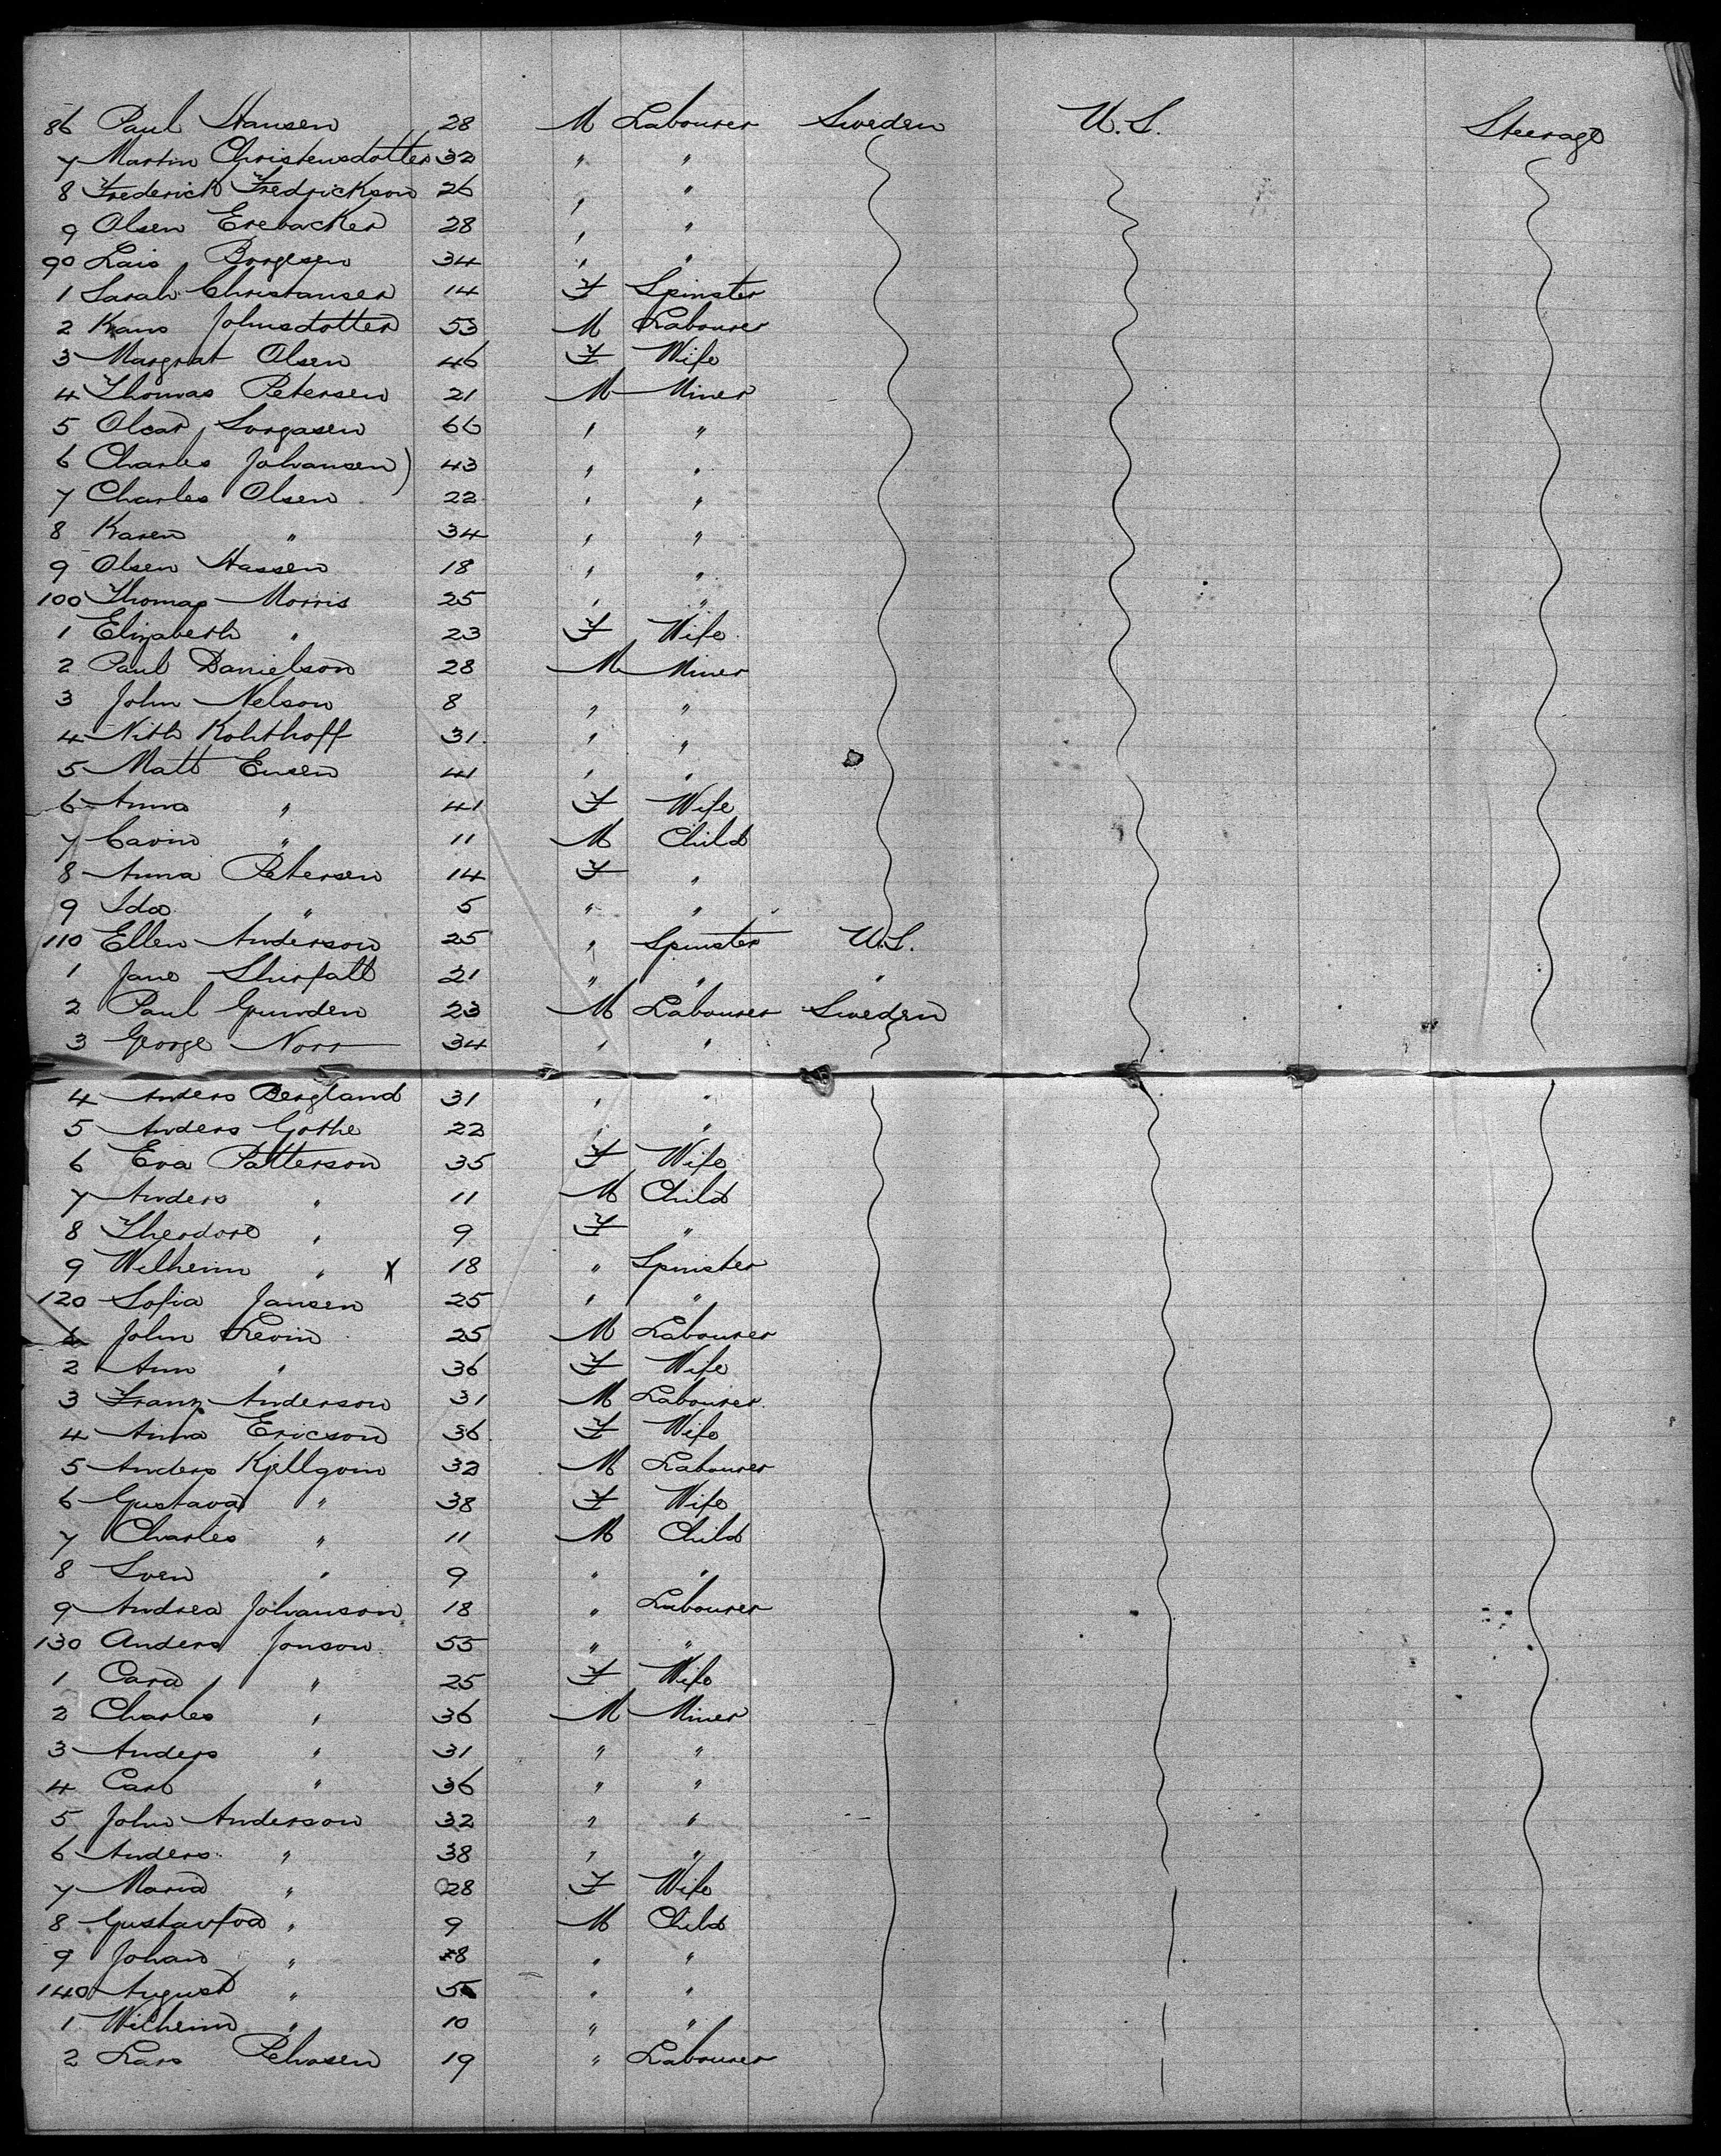 86 Paul Hansen 28 M Labourer Sweden U.S. Steerage
7 Martin Christensdotter 32 " "
8 Frederick Fredrickson 26 " "
9 Olsen Erebacker 28 " "
90 Lais Borgesen 34 " "
1 Sarah Christanser 14 F Spinster
2 Kans Johnsdotter 53 M Labourer
3 Margrat Olsen 46 F Wife
4 Thomas Petersen 21 M Miner
5 Olcar Sorgasen 66 " "
6 Charles Johansen) 43 " "
7 Charles Olsen 22 " "
8 Karen " 34 " "
9 Olsen Hassen 18 " "
100 Thomas Morris 25 " "
1 Elizabeth " 23 F Wife
2 Paul Danielson 28 M Miner
3 John Nelson 8 " "
4 Nith Kohthoff 31 " "
5 Matt Ensen 41 " "
6 Anna " 41 F Wife
7 Cavin " 11 M Child
8 Anna Petersen 14 F "
9 Ida " 5 " "
110 Ellen Anderson 25 " Spinster U.S.
1 Jane Shirfall 21 " " "
2 Paul Gunden 23 M Labourer Sweden
3 George Norr 34 " "
4 Anders Bergland 31 " "
5 Anders Gothe 22 " "
6 Eva Patterson 35 F Wife
7 Anders " 11 M Child
8 Theodore " 9 F "
9 Wilheim " X 18 " Spinster
120 Sofia Jansen 25 " "
John Levin 25 M Labourer
2 Ann " 36 F Wife
3 Franz Anderson 31 M Labourer
4 Anna Ericson 36 F Wife
5 Anders Kjellgoin 32 M Labourer
6 Gustava " 38 F Wife
7 Charles " 11 M Child
8 Sven " 9 " "
9 Andrea Johanson 18 " Labourer
130 Anders Jonson 55 " "
1 Cara " 25 F Wife
2 Charles " 36 M Miner
3 Anders " 31 " "
4 Carl " 36 " "
5 John Anderson 32 " "
6 Anders " 38 " "
7 Maria " 28 F Wife
8 Gustavfva " 9 M Child
9 Johan " 8 " "
140 August " 5 " "
1 Wilheim " 10 " "
2 Lars Pehrsen 19 " Labourer